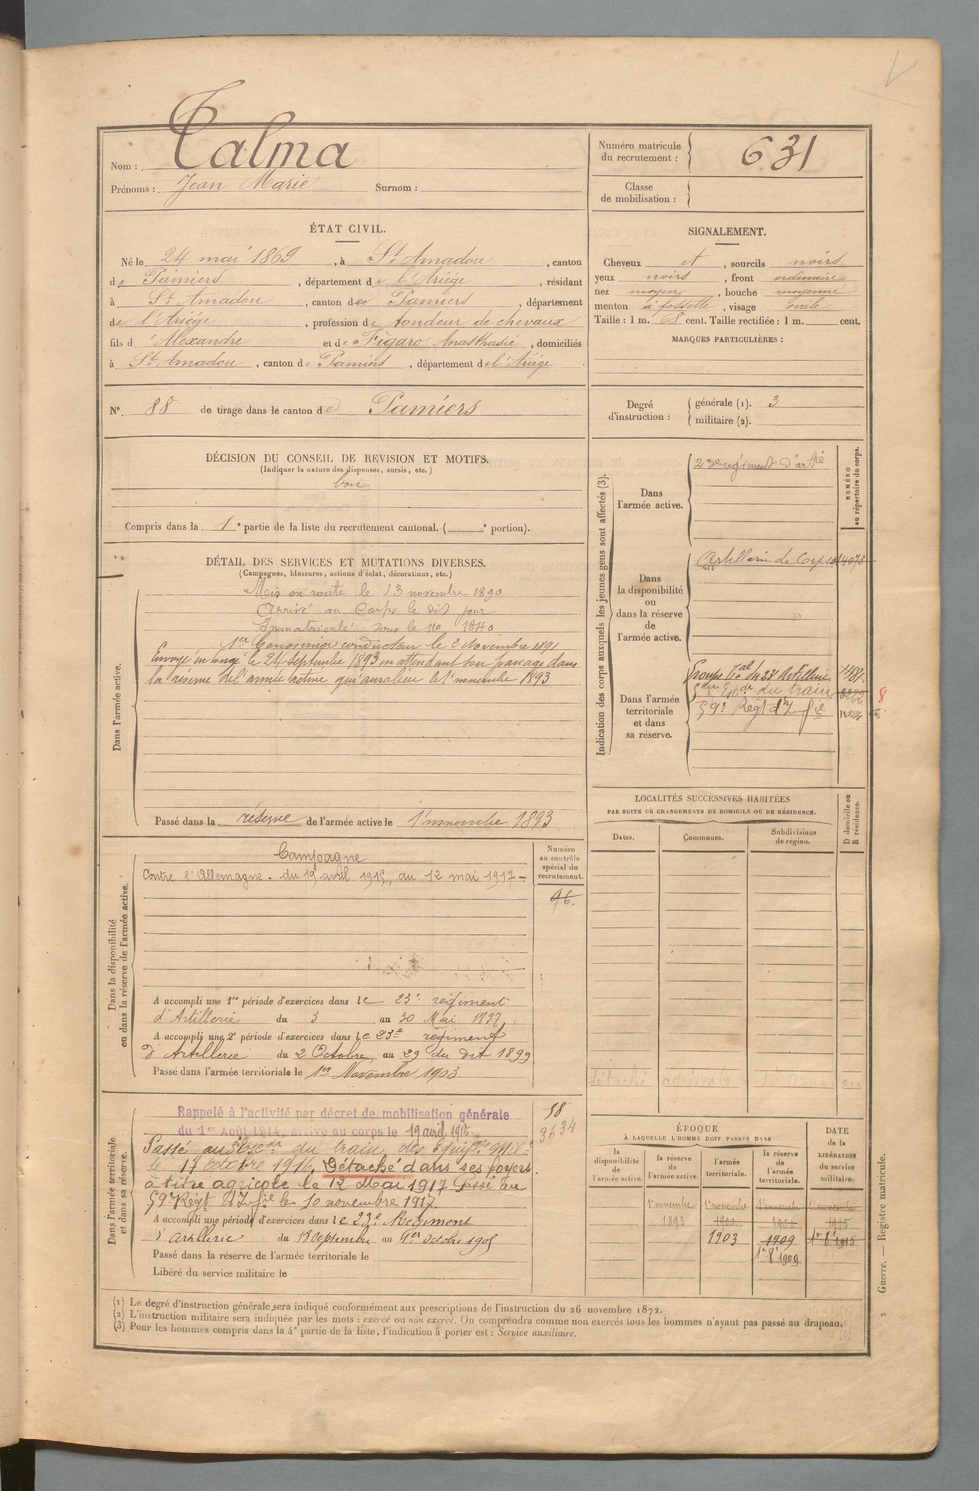 Nom : Talma
Prénoms : Jean Marie Surnom :
Numéro matricule du recrutement : 631
Classe de mobilisation :
ÉTAT CIVIL.
Né le 24 mai 1869, à St Amadou, canton
de Pamiers, département de l'Ariége, résidant
à St Amadou, canton de Pamiers, département
de l'Ariége, profession de tondeur de chevaux
fils d'Alexandre et de Figaro Anasthasie, domiciliés
à St Amadou, canton de Pamiers, département de l'Ariége
N° 88 de tirage dans le canton de Pamiers
SIGNALEMENT.
Cheveux et, sourcils noirs
yeux noirs, front ordinaire
nez moyen, bouche moyenne
menton à fossette, visage ovale
Taille : 1 m. 68 cent. Taille rectifiée : 1 m. cent.
MARQUES PARTICULIÈRES :
Degré d'instruction : générale (1). 3
militaire (2).
DÉCISION DU CONSEIL DE REVISION ET MOTIFS.
(Indiquer la nature des dispenses, sursis, etc.)
bon
Compris dans la 1e partie de la liste du recrutement cantonal. ( e portion).
DÉTAIL DES SERVICES ET MUTATIONS DIVERSES.
(Campagnes, blessures, actions d'éclat, décorations, etc.)
Dans l'armée active.
Mis en route le 13 novembre 1890
Arrivé au Corps le dit jour
Immatriculé sous le no 1840
1er Canonnier conducteur le 2 Novembre 1891
Envoyé en congé le 24 septembre 1893 en attendant son passage dans
la réserve de l'armée active qui aura lieu le 1er novembre 1893
Passé dans la réserve de l'armée active le 1er novembre 1893
Indication des corps auxquels les jeunes gens sont affectés (3).
NUMÉRO au répertoire du corps.
Dans l'armée active.
23e régiment d'artie
Dans la disponibilité ou dans la réserve de l'armée active.
Artillerie de Corps
Dans l'armée territoriale et dans sa réserve.
Groupe Tal du 23e Artillerie
du train
59e Régt d'Infie
LOCALITÉS SUCCESSIVES HABITÉES
PAR SUITE DE CHANGEMENTS DE DOMICILE OU DE RÉSIDENCE.
Dates. Communes. Subdivisions de région. D domicile ou R résidence.
Dans la disponibilité ou dans la réserve de l'armée active.
Numéro au contrôle spécial du recrutement.
96.
Campagne
Contre l'Allemagne. du 19 avril 1915, au 12 mai 1917
A accompli une 1re période d'exercices dans le 23e régiment
d'Artillerie du 3 au 30 Mai 1897
A accompli une 2e période d'exercices dans le 23e régiment
d'Artillerie du 2 Octobre au 29 du dit 1899
Passé dans l'armée territoriale le 1er Novembre 1903
Dans l'armée territoriale et dans sa réserve.
58
3634
Rappelé à l'activité par décret de mobilisation générale
du 1er Août 1914, arrivé au corps le 19 avril 1915.
Passé au Escdr du train des Équip. Milres
le 17 octobre 1916. Détaché dans ses foyers
à titre agricole le 12 Mai 1917 Passé au
59e Régt d'Infie le 10 novembre 1917.
A accompli une période d'exercices dans le 23e Régiment
d'artillerie du
Passé dans la réserve de l'armée territoriale le
Libéré du service militaire le
ÉPOQUE
À LAQUELLE L'HOMME DOIT PASSER DANS
la disponibilité de l'armée active. la réserve de l'armée active. l'armée territoriale. la réserve de l'armée territoriale. DATE de la LIBÉRATION du service militaire.
1er novembre 1893 1er novembre 1900 1903
1909
1er 8bre 1909
1er 8bre 1915
(1) Le degré d'instruction générale sera indiqué conformément aux prescriptions de l'instruction du 26 novembre 1872.
(2) L'instruction militaire sera indiquée par les mots : exercé ou non exercé. On comprendra comme non exercés tous les hommes n'ayant pas passé au drapeau.
(3) Pour les hommes compris dans la 4e partie de la liste, l'indication à porter est : Service auxiliaire.
Guerre. — Registre matricule.